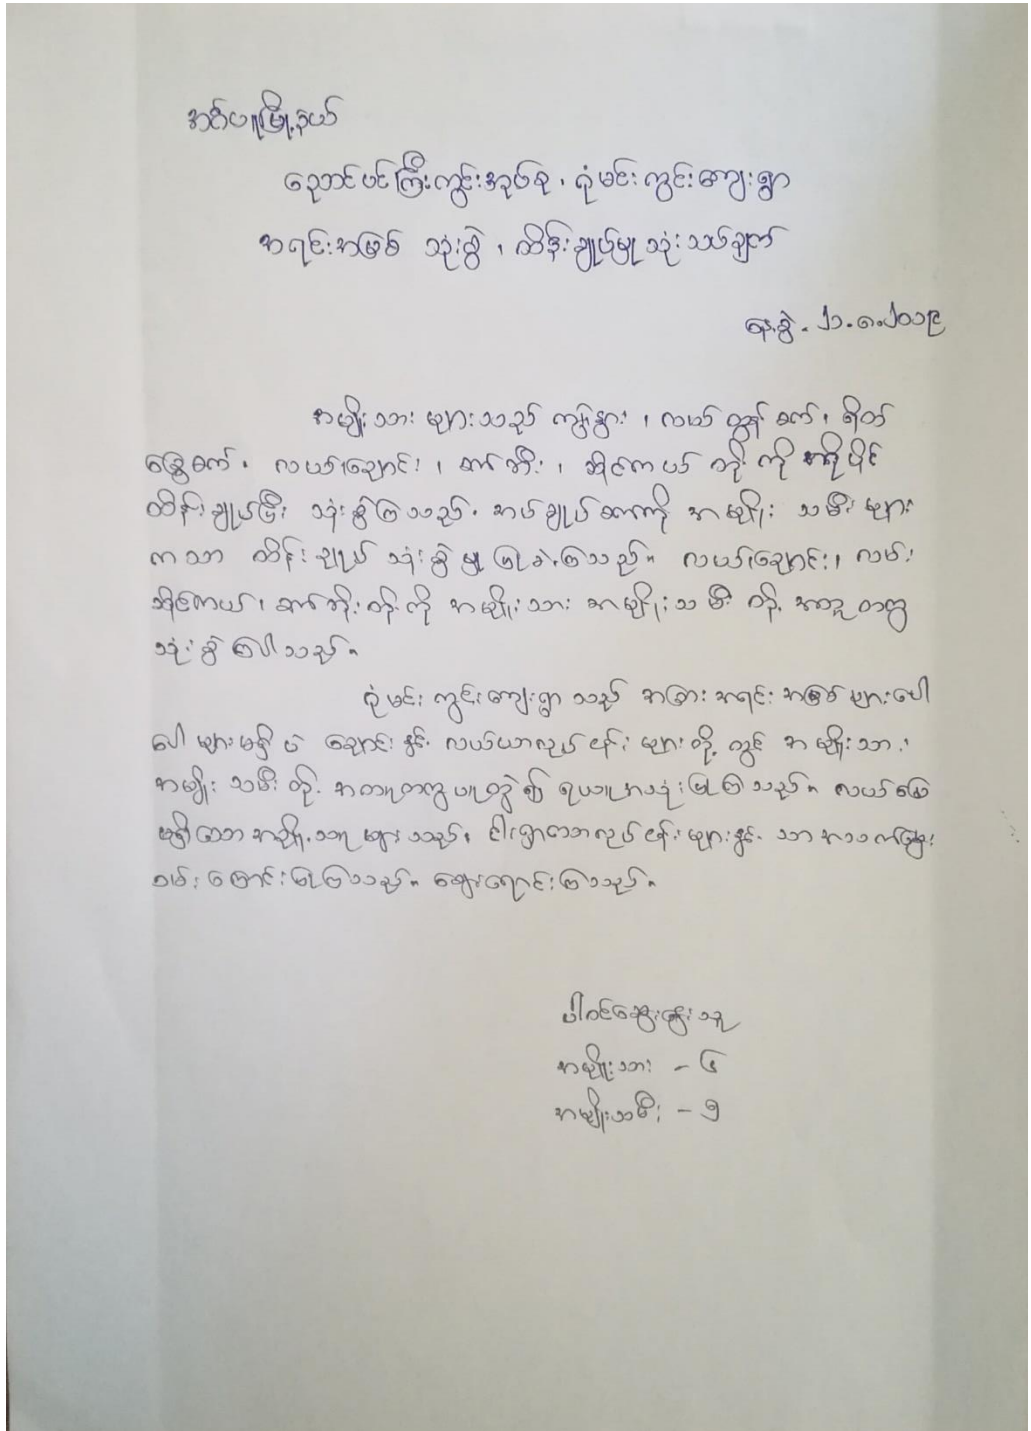 အင်္ဂပူမြို့နယ်
ညောင်ပင်ကြီးကွင်းအုပ်စု၊ ဂုံမင်းကွင်းကျေးရွာ
အရင်းအမြစ် သုံးစွဲ၊ ထိန်းချုပ်မှု သုံးသပ်ချက်
နေ့စွဲ - ၂၁.၈.၂၀၁၉
အမျိုးသား များသည် ကျွဲ၊ နွား၊ လယ်ထွန်စက်၊ ရိတ်
ခြွေစက်၊ လယ်၊ ချောင်း၊ ဆိုင်ကယ် တို့ကို
ထိန်းချုပ်ပြီး သုံးစွဲကြသည်။ အပ်ချုပ်စက်ကို အမျိုး သမီး များ
ကသာ ထိန်းချုပ် သုံးစွဲ မှု ပြုခဲ့ကြသည်။ လယ်၊ ချောင်း၊ လမ်း၊
ဆိုင်ကယ်၊ တို့ကို အမျိုးသား အမျိုးသမီး တို့ အတူတကွ
သုံးစွဲကြပါသည်။
ဂုံမင်းကွင်းကျေးရွာ သည် အခြား အရင်းအမြစ်များပေါ
ပေါများမရှိပဲ ချောင်းနှင့် လယ်ယာလုပ်ငန်းများတို့တွင် အမျိုးသား၊
အမျိုးသမီးတို့ အတူတကွ ပူးတွဲ၍ ရယူအသုံးပြုကြသည်။ လယ်မြေ
မရှိသော အချို့သူများသည် ငါးရှာသောလုပ်ငန်းများနှင့် သာ အသက်မွေး
ဝမ်းကြောင်းပြုကြသည်။ ဈေးရောင်းကြသည်။
ပါဝင်ဆွေးနွေးသူ
အမျိုးသား - ၆
အမျိုးသမီး - ၅